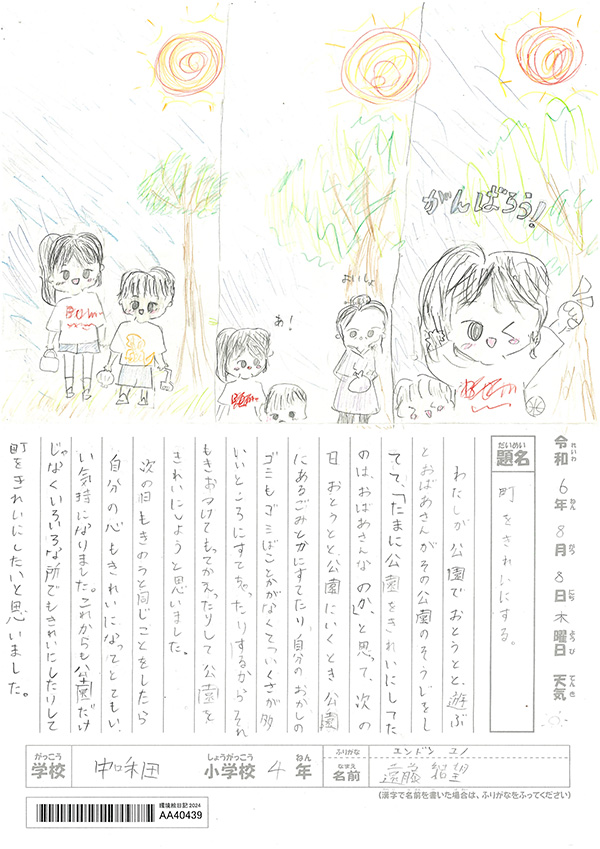 がんばろう!
おいしょ
あ!
BUM
令和6年8月8日木曜日 天気
れいわ ねん がつ にち ようび てんき
だいめい
題名
町をきれいにする。
わたしが公園でおとうとと、遊ぶ
とおばあさんがその公園のそうじをし
てて、「たまに公園をきれいにしてた
のは、おばあさんなのか」と思って、次の
日おとうとと、公園にいくとき公園
にあるごみとかにすてたり、自分のおかしの
ゴミもゴミばことかがなくてついくさが多
いいところにすてちゃったりするからそれ
もきおつけてもってかえったりして公園を
きれいにしようと思いました。
次の日もきのうと同じことをしたら
自分の心もきれいになってとてもい
い気持になりました。これからも公園だけ
じゃなくいろいろな所でもきれいにしたりして
町をきれいにしたいと思いました。
がっこう
学校
しょうがっこう ねん
小学校 4年
ふりがな エンドン ユノ
なまえ
名前 遠藤 結望
(漢字で名前を書いた場合は、ふりがなをふってください)
環境絵日記2024
AA40439